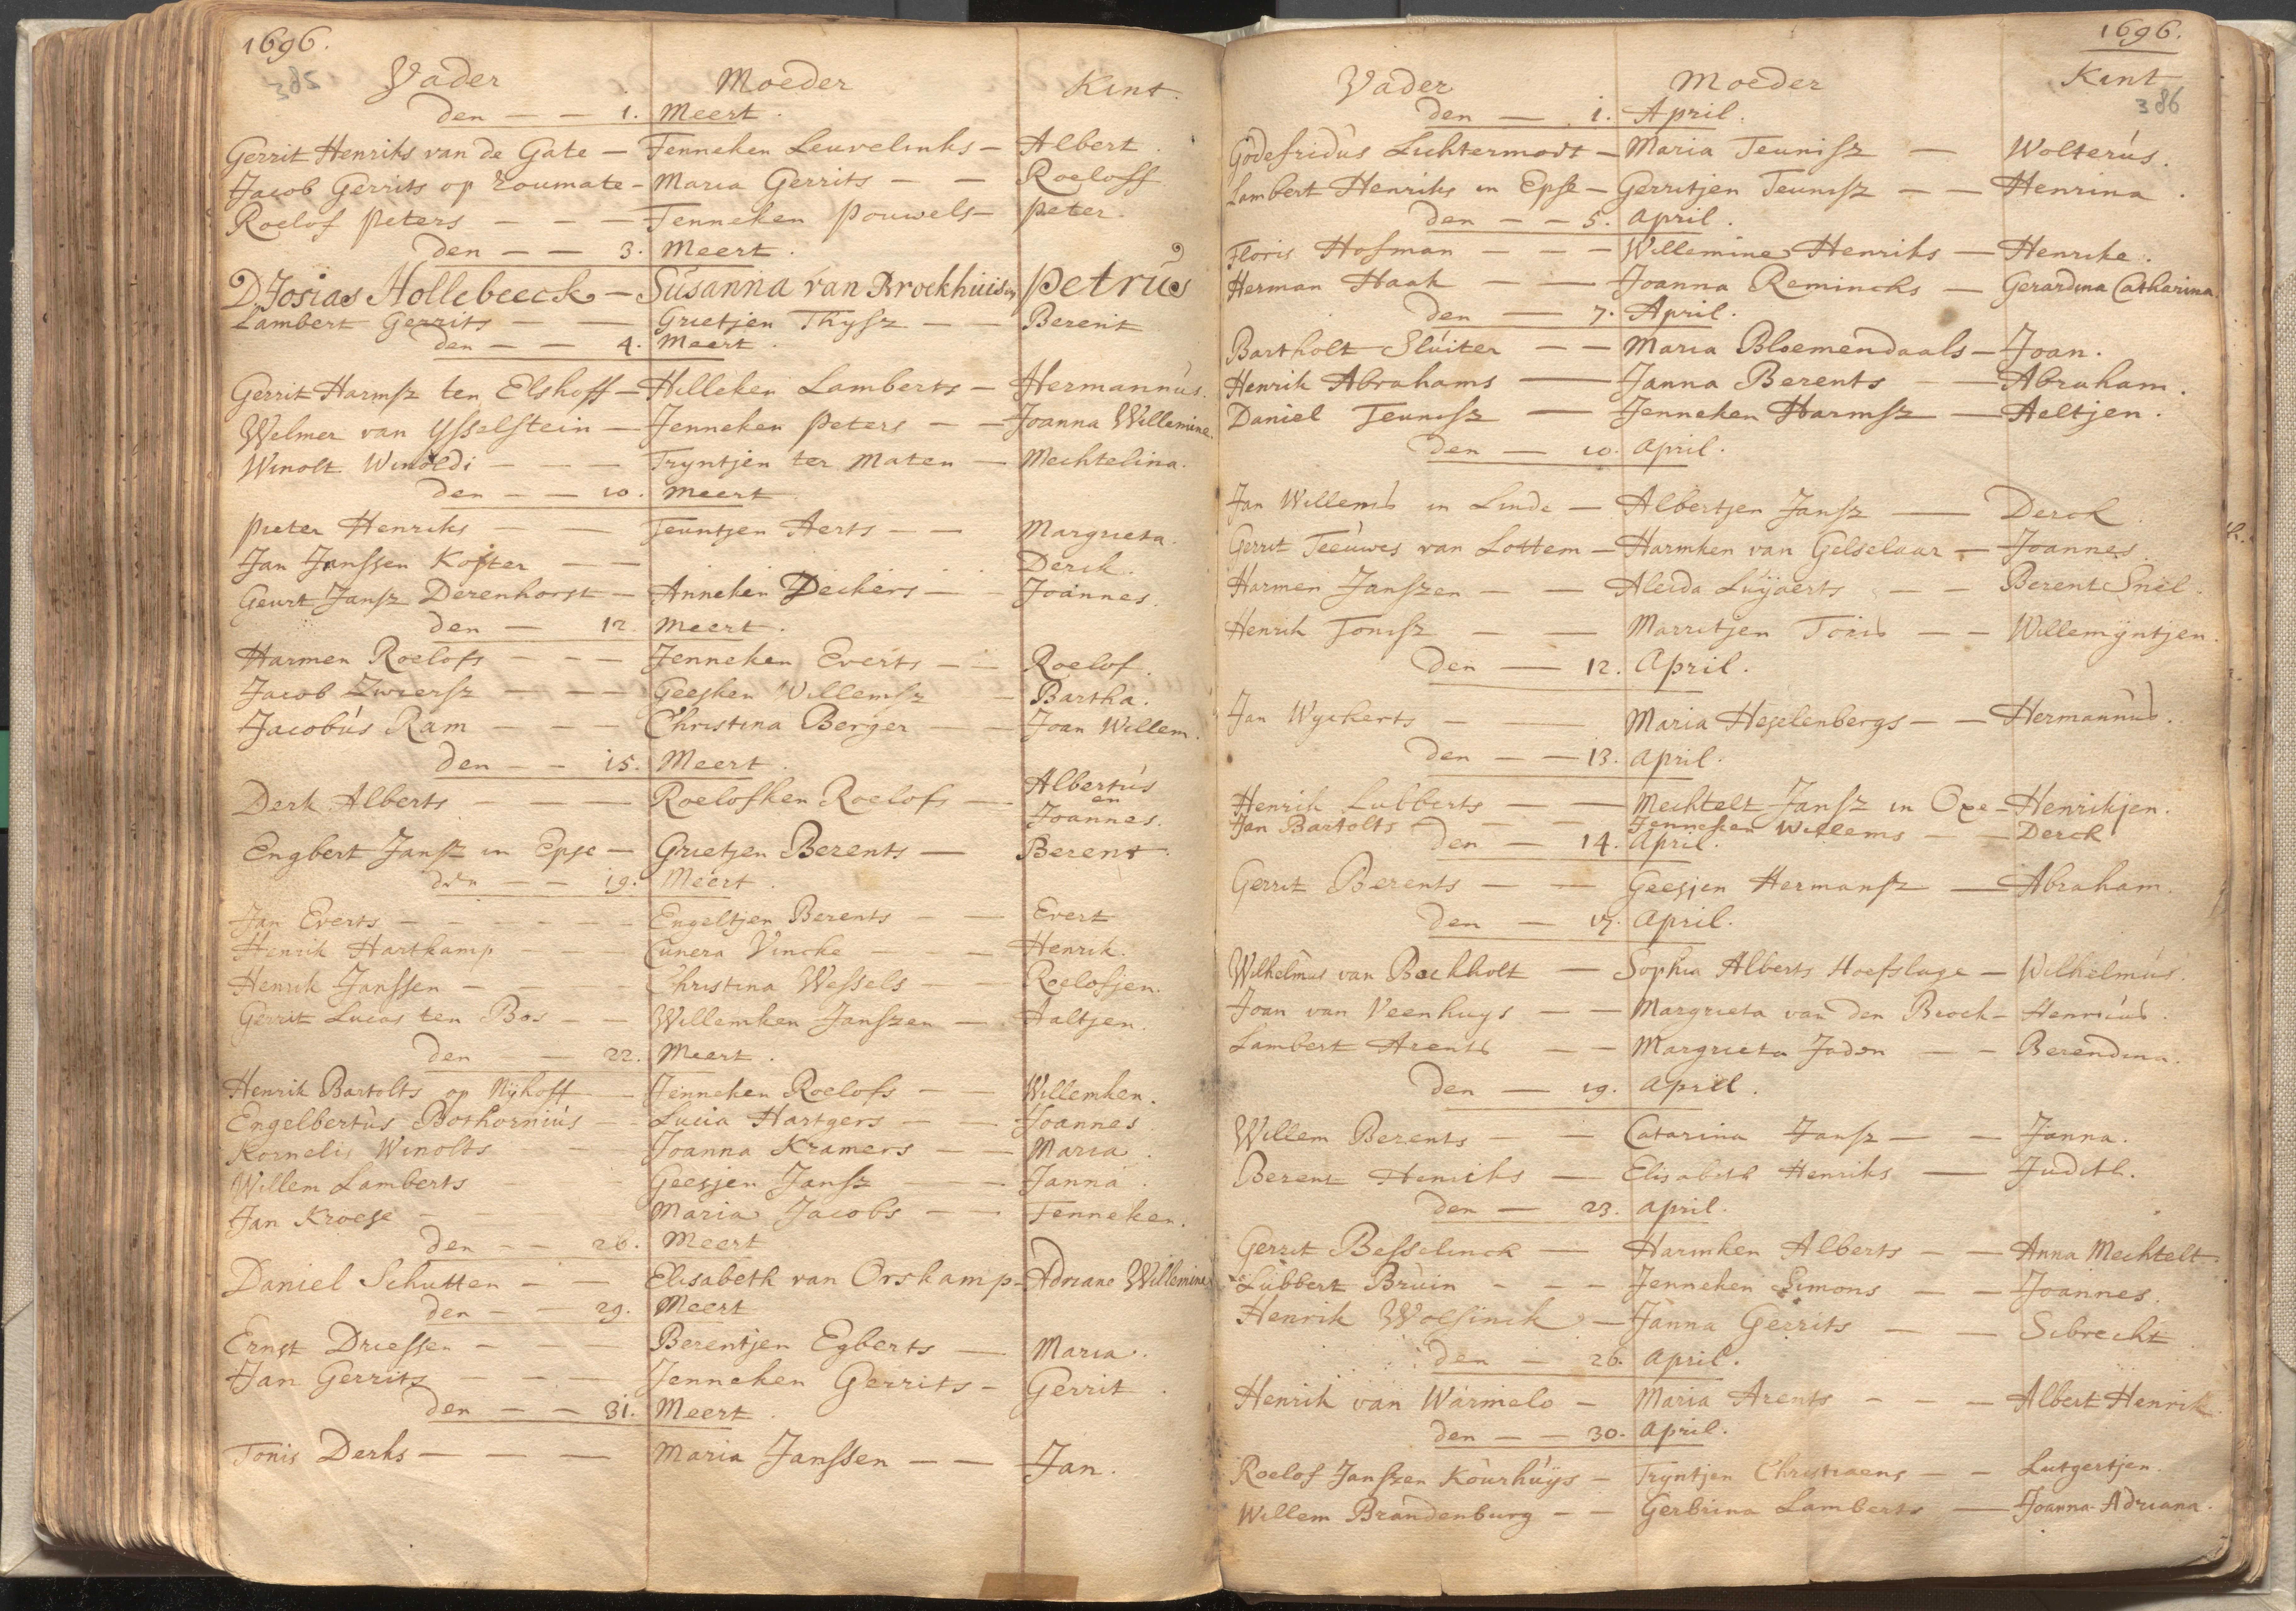 1696.
385
Vader Moeder Kint.
den — — 1. Meert.
Gerrit Henriks van de Gate — Fenneken Leuvelinks — Albert.
Jacob Gerrits op Zoumate — Maria Gerrits — — Roeloff
Roelof Peters — — — Fenneken Pouwels — Peter.
den — — 3. Meert.
D. Josias Hollebeeck — Susanna van Broekhuisen Petrus
Lambert Gerrits — — Grietjen Thysz — — Berent
den — — 4. Meert.
Gerrit Harmsz ten Elshoff — Hilleken Lamberts — Hermannus.
Welmer van Ysselstein — Jenneken Peters — — Joanna Willemine.
Winolt Winoldi — — — Tryntjen ter Maten — Mechtelina.
den — — 10. Meert
Pieter Henriks — — Teuntjen Aerts — — Margrieta.
Jan Janssen Koster — — Derck.
Geurt Jansz Derenhorst — Anneken Deckers — — Joannes.
den — 12. Meert.
Harmen Roelofs — — — Jenneken Everts — — Roelof.
Jacob Zwiersz — — — Geesken Willemsz — Bartha.
Jacobus Ram — — — Christina Berger — — Joan Willem.
den — — 15. Meert.
Derk Alberts — — — Roelofken Roelofs — Albertus
en
Joannes.
Engbert Jansz in Epse — Grietjen Berents — Berent.
den — — 19. Meert.
Jan Everts — — — — — Engeltjen Berents — — Evert
Henrik Hartkamp — — Cunera Vincke — — — Henrik.
Henrik Janssen — — — — Christina Wessels — — Roelofjen.
Gerrit Lucas ten Bos — — Willemken Janszen — Aaltjen.
den — — 22. Meert.
Henrik Bartolts op Nijhoff — Jenneken Roelofs — Willemken.
Engelbertus Bothornius — — Lucia Hartgers — — Joannes
Kornelis Winolts — — Joanna Kramers — — Maria.
Willem Lamberts — — Geesjen Jansz — — Janna.
Jan Kroese — — — Maria Jacobs — — Fenneken.
den — — 26. Meert
Daniel Schutten — — Elisabeth van Orskamp — Adriane Willemine
den — — 29. Meert
Ernst Driessen — — — Berentjen Egberts — Maria.
Jan Gerrits — — — Jenneken Gerrits — Gerrit.
den — — 31. Meert.
Tonis Derks — — — Maria Janssen — — Jan.
1696.
386
Vader Moeder Kint
den — 1. April.
Godefridus Lichtermodt — Maria Teunisz — Wolterus.
Lambert Henriks in Epse — Gerritjen Teunisz — — Henrina.
den — — 5. April.
Floris Hofman — — — Willemine Henriks — Henrike.
Herman Haak — — Joanna Remincks — Gerardina Catharina.
den — 7. April.
Bartholt Sluiter — — Maria Bloemendaals — Joan.
Henrik Abrahams — Janna Berents — Abraham.
Daniel Teunisz — Jenneken Harmsz — Aeltjen.
den — 10. April.
Jan Willems in Linde — Albertjen Jansz — Derck
Gerrit Teeuwes van Lottem — Harmken van Gelselaar — Joannes.
Harmen Janszen — — Aleida Luyaerts — — Berent Snel.
Henrik Tonisz — — Marritjen Toris — — Willemijntjen.
den — 12. April.
Jan Wyckerts — — Maria Heselenbergs — — Hermannus.
den — — 13. April.
Henrik Lubberts — — Mechtelt Jansz in Oxe — Henrikjen.
Jan Bartolts — — Jenneken Willems — — Derck
den — 14. April.
Gerrit Berents — — Geesjen Hermansz — Abraham.
den — 17. April.
Wilhelmus van Bockholt — Sophia Alberts Hoefslage — Wilhelmus.
Joan van Veenhuys — — Margrieta van den Broek — Henricus.
Lambert Arents — — Margrieta Jadon — — Berendina.
den — 19. April.
Willem Berents — — Catarina Jansz — — Janna.
Berent Henriks — Elisabeth Henriks — Judith.
den — 23. April.
Gerrit Besselinck — Harmken Alberts — — Anna Mechtelt.
Lubbert Bruin — — — Jenneken Simons — — Joannes.
Henrik Wolsinck — Janna Gerrits — — Sibrecht
den — 26. April.
Henrik van Warmelo — Maria Arents — — — Albert Henrik.
den — — 30. April.
Roelof Janszen Kourhuys — Tryntjen Christiaens — — Lutgertjen.
Willem Brandenburg — — Gerbrina Lamberts — Joanna Adriana.